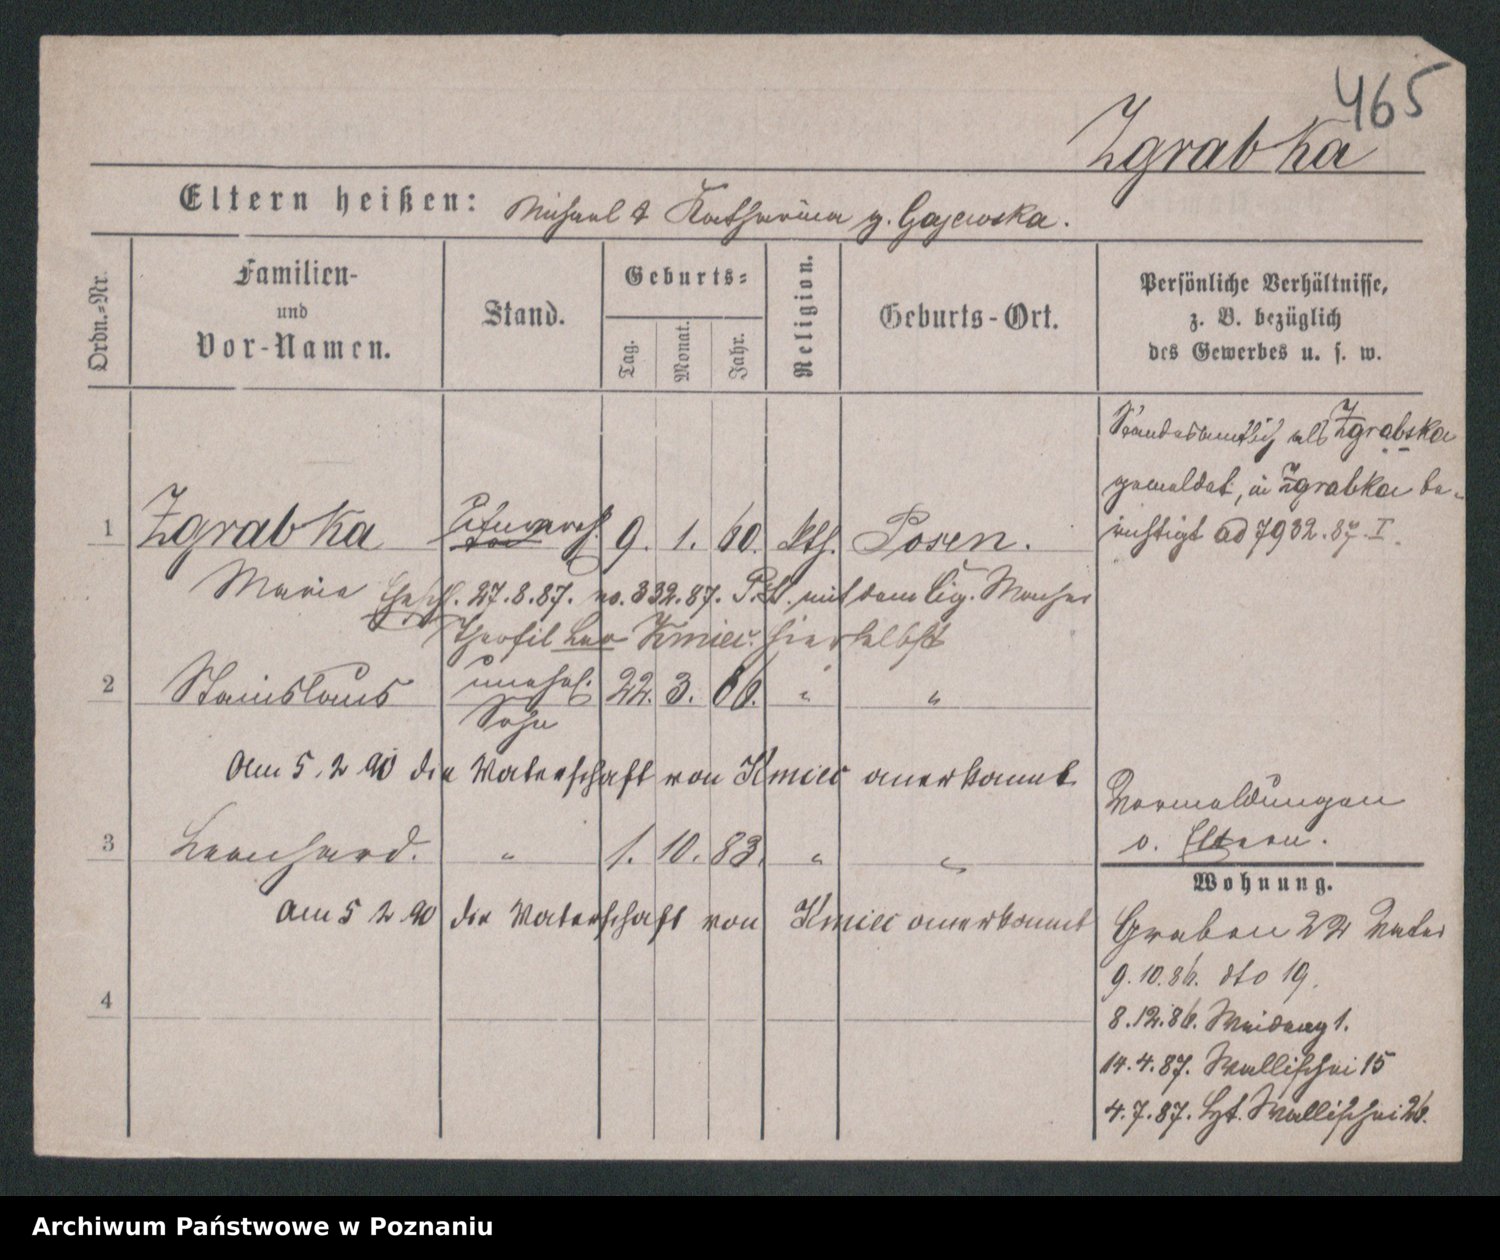 465
Zgrabka
Eltern heißen: Michael & Katharina g. Gajewska.
Ordn.-Nr.
Familien-
und
Vor-Namen.
Stand.
Geburts-
Tag.
Monat.
Jahr.
Religion.
Geburts-Ort.
Persönliche Verhältnisse,
z. B. bezüglich
des Gewerbes u. s. w.
Standesamtlich als Zgrabska
gemeldet, in Zgrabka be-
richtigt ad 7932.87.I.
1 Zgrabka 9. 1. 60. kth. Posen.
Maria Ehesch. 27.8.87. no. 332.87. mit dem Cig. Macher
Theofil Leo Kmiec hierselbst
2 Stanislaus unehel. 22. 3. 86. " "
Sohn
Am 5.2 90 die Vaterschaft von Kmiec anerkannt
3 Leonhard. " 1. 10. 83. " "
Am 5 2 90 die Vaterschaft von Kmiec anerkannt
4
Vormeldungen
v. Eltern.
Wohnung.
Graben 22 Vater
9.10.86. dto 19.
8.12.86. Weideng 1.
14.4.87. Wallischei 15
4.7.87. Wallischei 26.
Archiwum Państwowe w Poznaniu